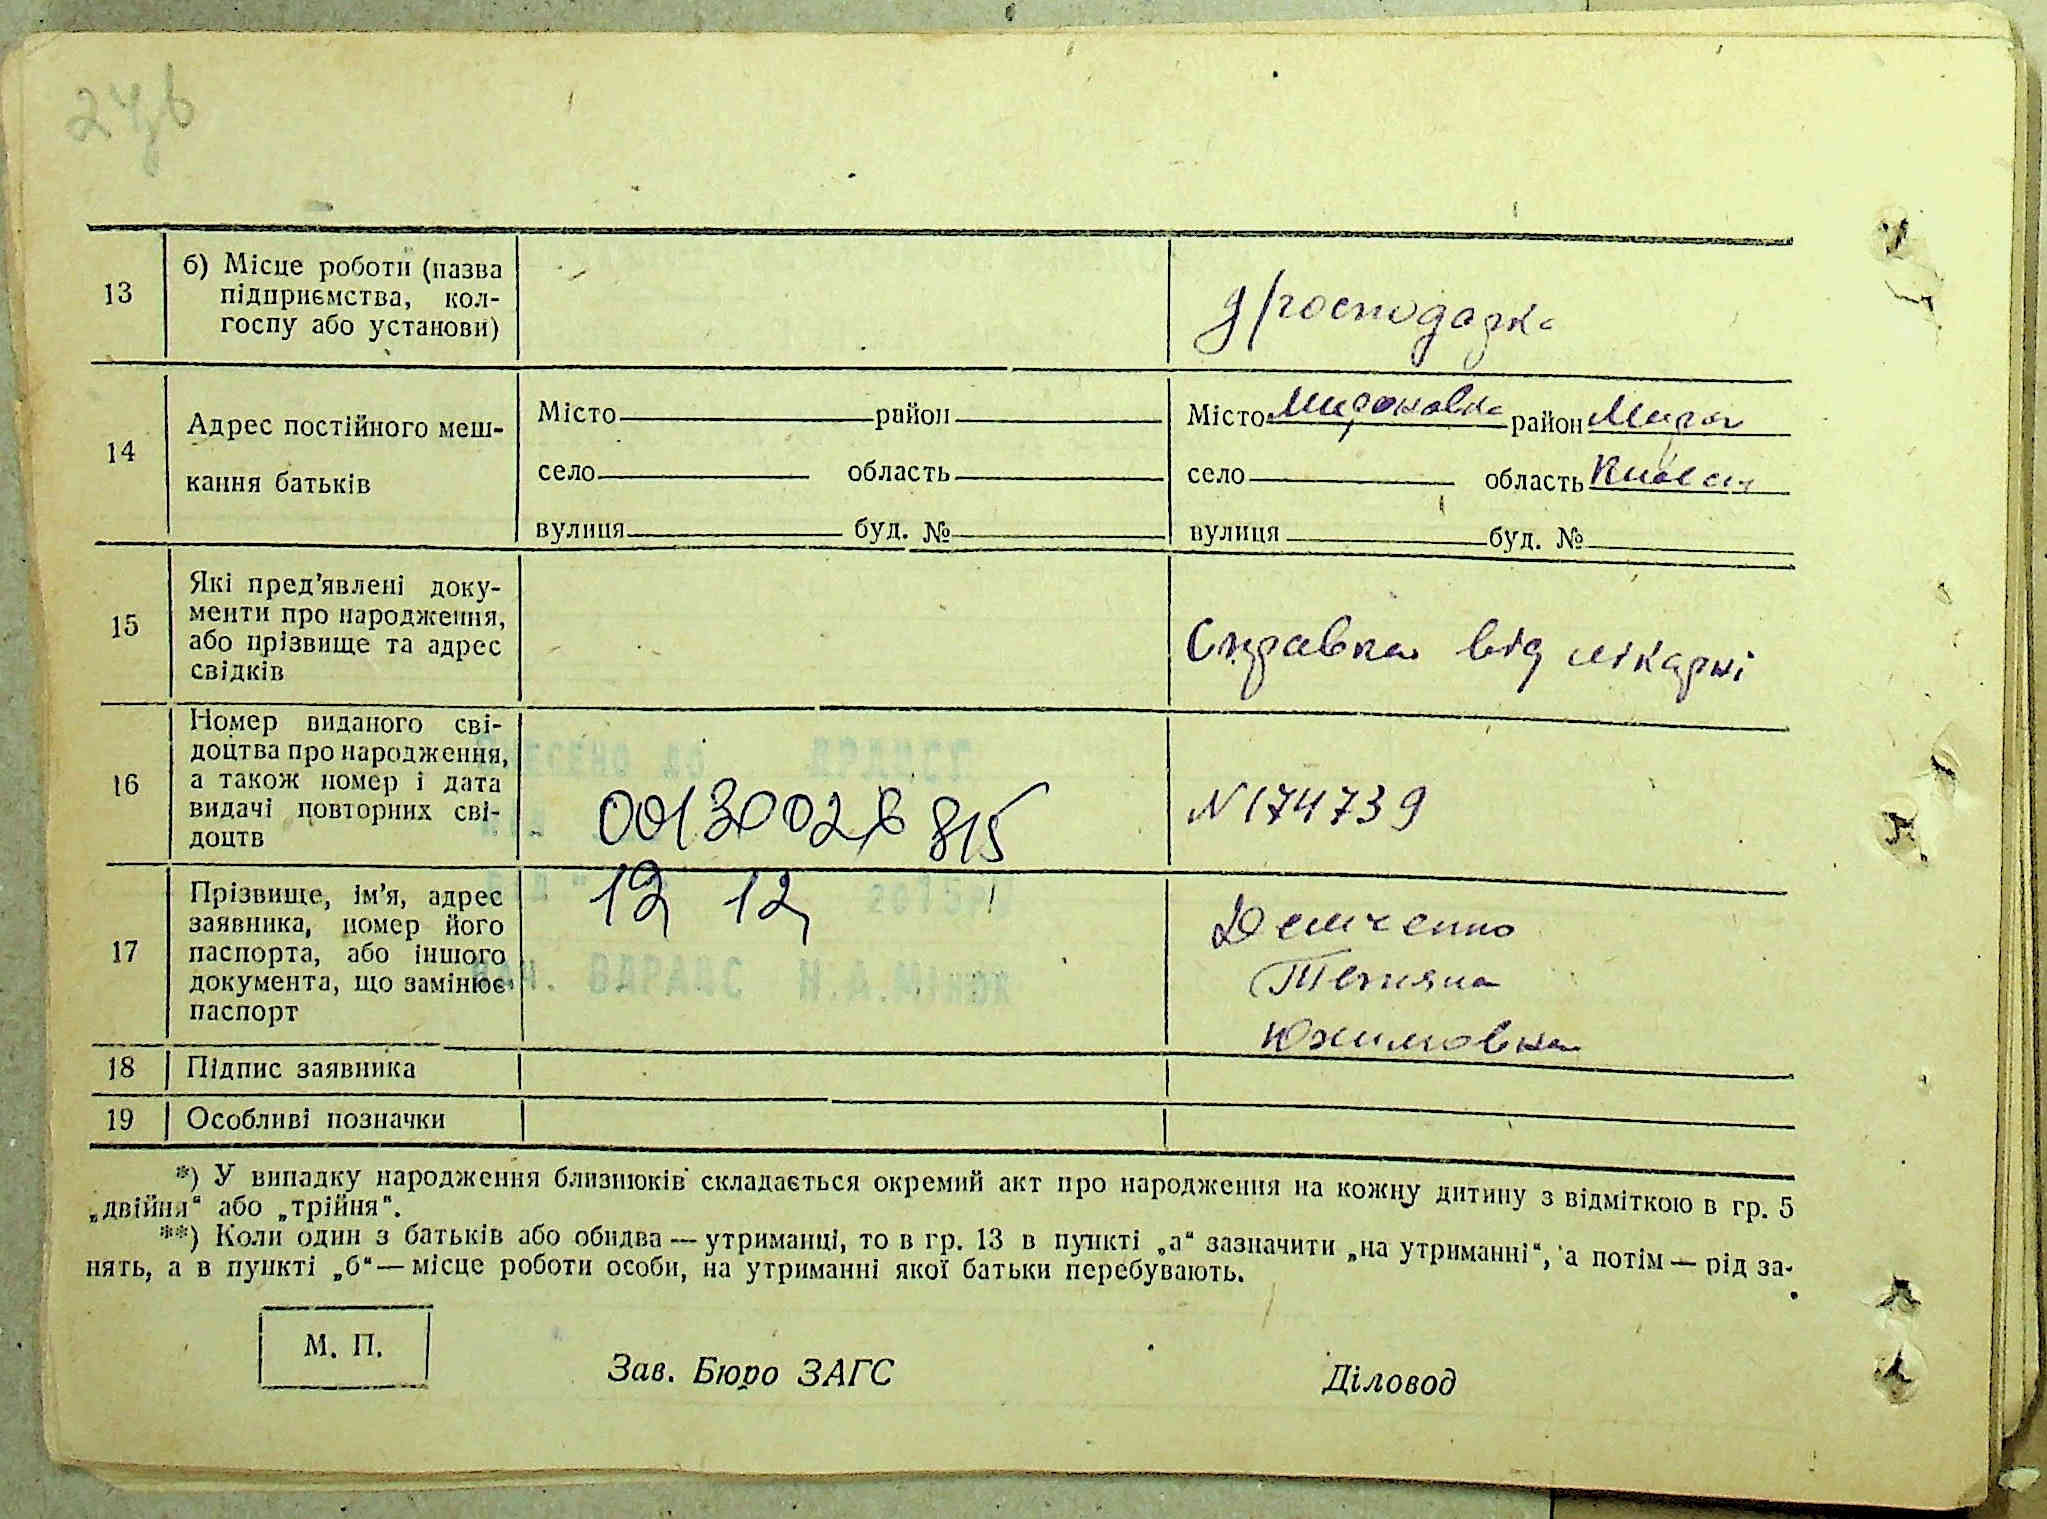 13
б) Місце роботи (назва
підприємства, кол-
госпу або установи)
д/господарка
14
Адрес постійного меш-
кання батьків
Місто район
село область
вулиця буд. №
Місто Мироновка район Мирон
село область Киевск
вулиця буд. №
15
Які пред'явлені доку-
менти про народження,
або прізвище та адрес
свідків
Справка від лікарні
16
Номер виданого сві-
доцтва про народження,
а також номер і дата
видачі повторних сві-
доцтв
ВНЕСЕНО ДО ДРАЦСГ
00130028815
№174739
17
Прізвище, ім'я, адрес
заявника, номер його
паспорта, або іншого
документа, що замінює
паспорт
12 12 2015р
НАЧ. ВДРАЦС Н.А.Мінох
Демченко
Тетяна
Юхимовна
18
Підпис заявника
19
Особливі позначки
*) У випадку народження близнюків складається окремий акт про народження на кожну дитину з відміткою в гр. 5
„двійня“ або „трійня“.
**) Коли один з батьків або обидва — утриманці, то в гр. 13 в пункті „а“ зазначити „на утриманні“, а потім — рід за-
нять, а в пункті „б“ — місце роботи особи, на утриманні якої батьки перебувають.
М. П.
Зав. Бюро ЗАГС
Діловод